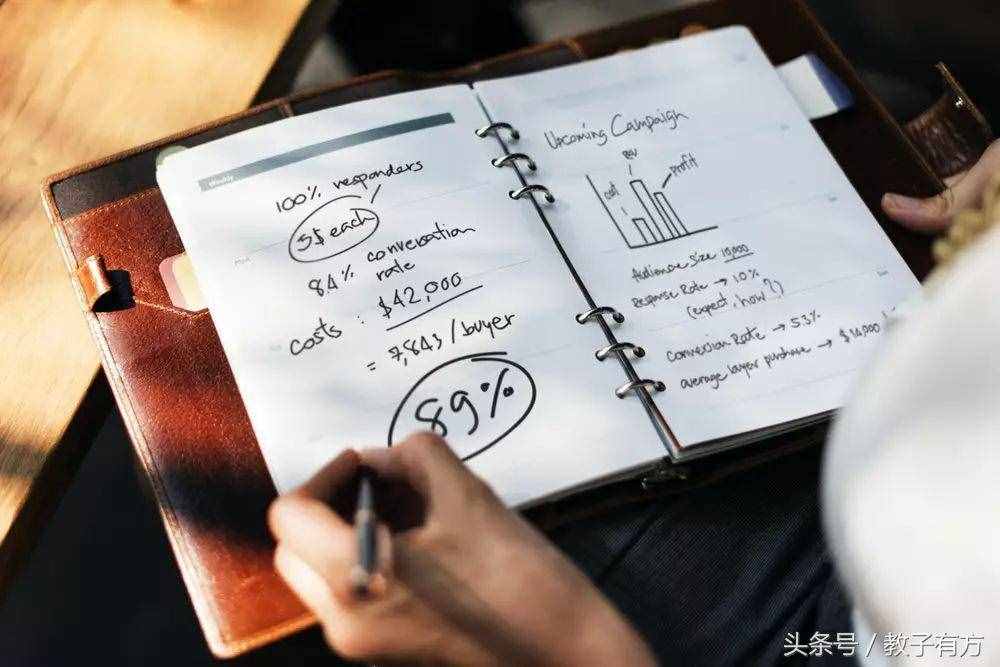 Weekly
100% responders
5$ each
84% conversation
rate
costs : $42,000
= 7,843/buyer
89%
Upcoming Campaign
cost
Profit
Audience Size 10,000
Response Rate → 10%
(expect, how?)
Conversion Rate → 5.3%
average buyer purchase → $10,000
头条号 / 教子有方